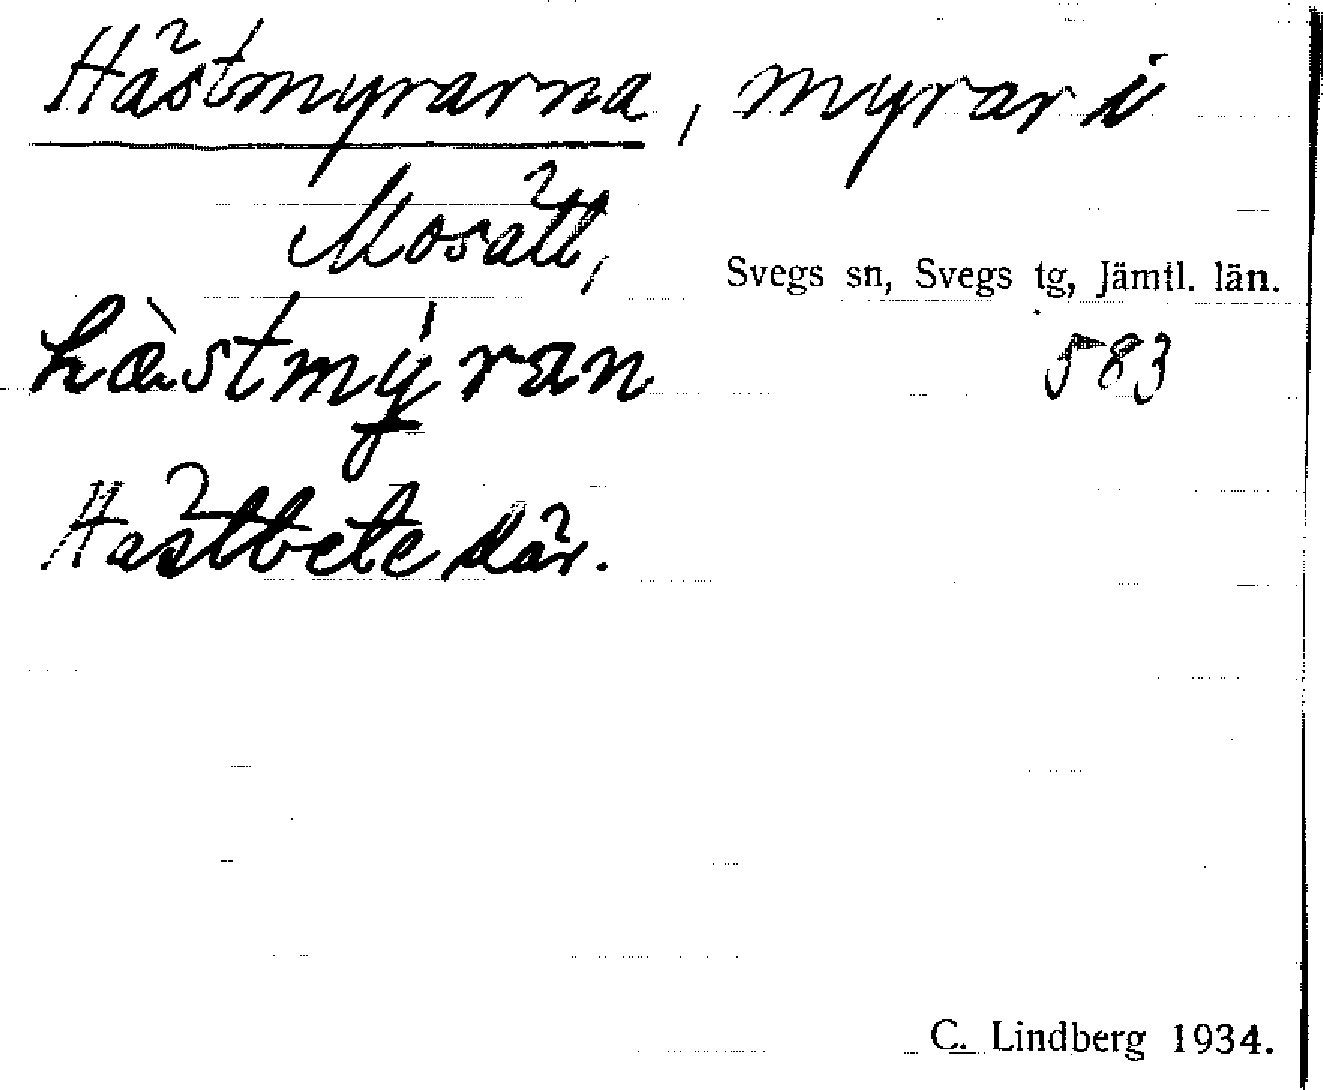 Hästmyrarna, myrar i
Mosätt,
Svegs sn, Svegs tg, Jämtl. län.
hæ̀stmỵ́ran
583
Hästbete där.
C. Lindberg 1934.